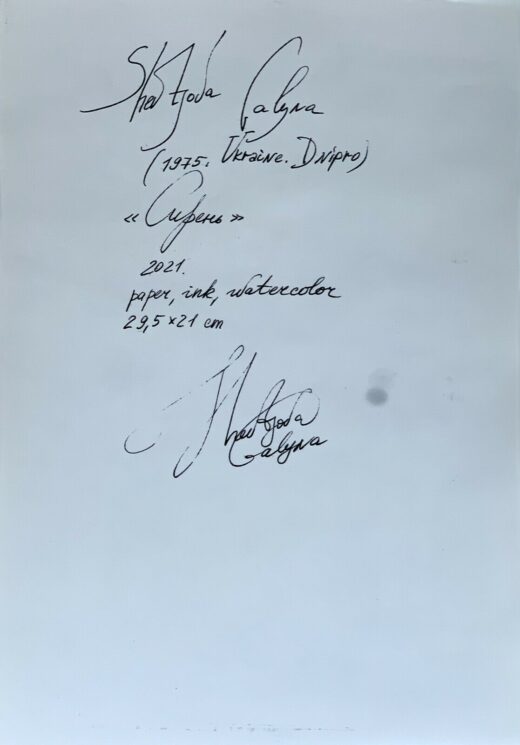 Shevtjoda Galyna
(1975. Ukraine. Dnipro)
«Сирень»
2021.
paper, ink, watercolor
29,5×21 cm
Shevtjoda
Galyna